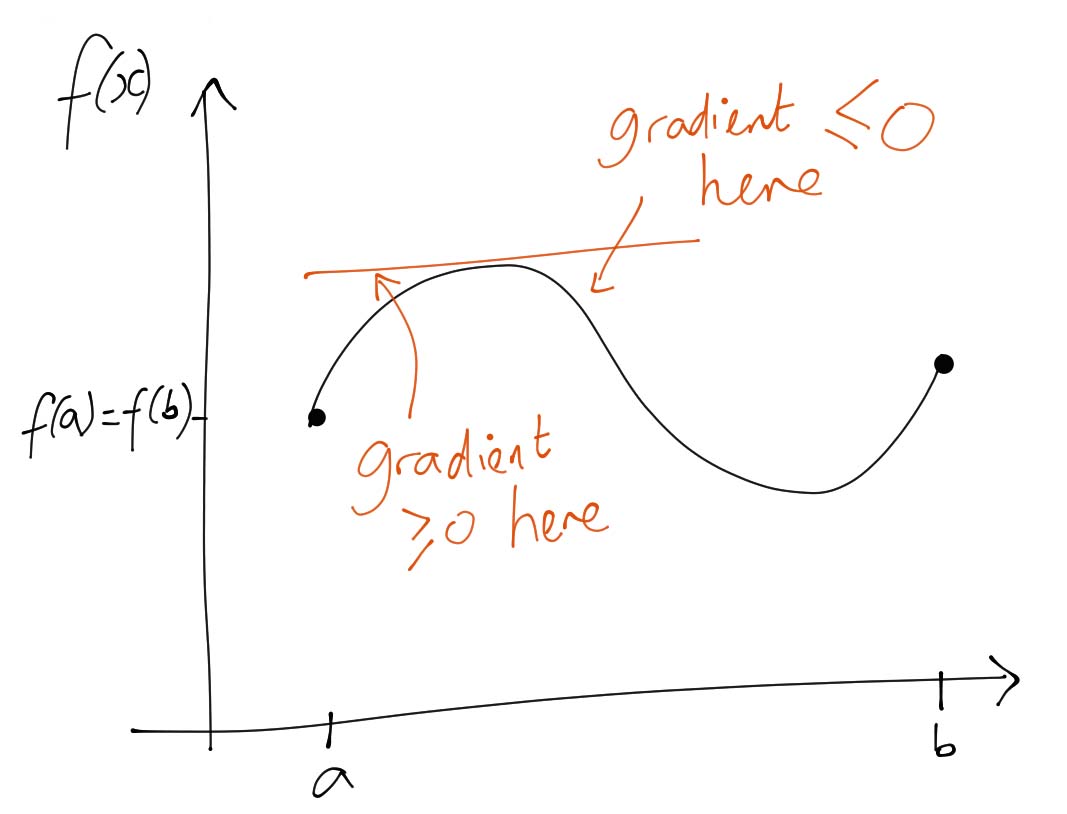 f(x)
gradient ≤0
here
f(a)=f(b)
gradient
≥0 here
a
b